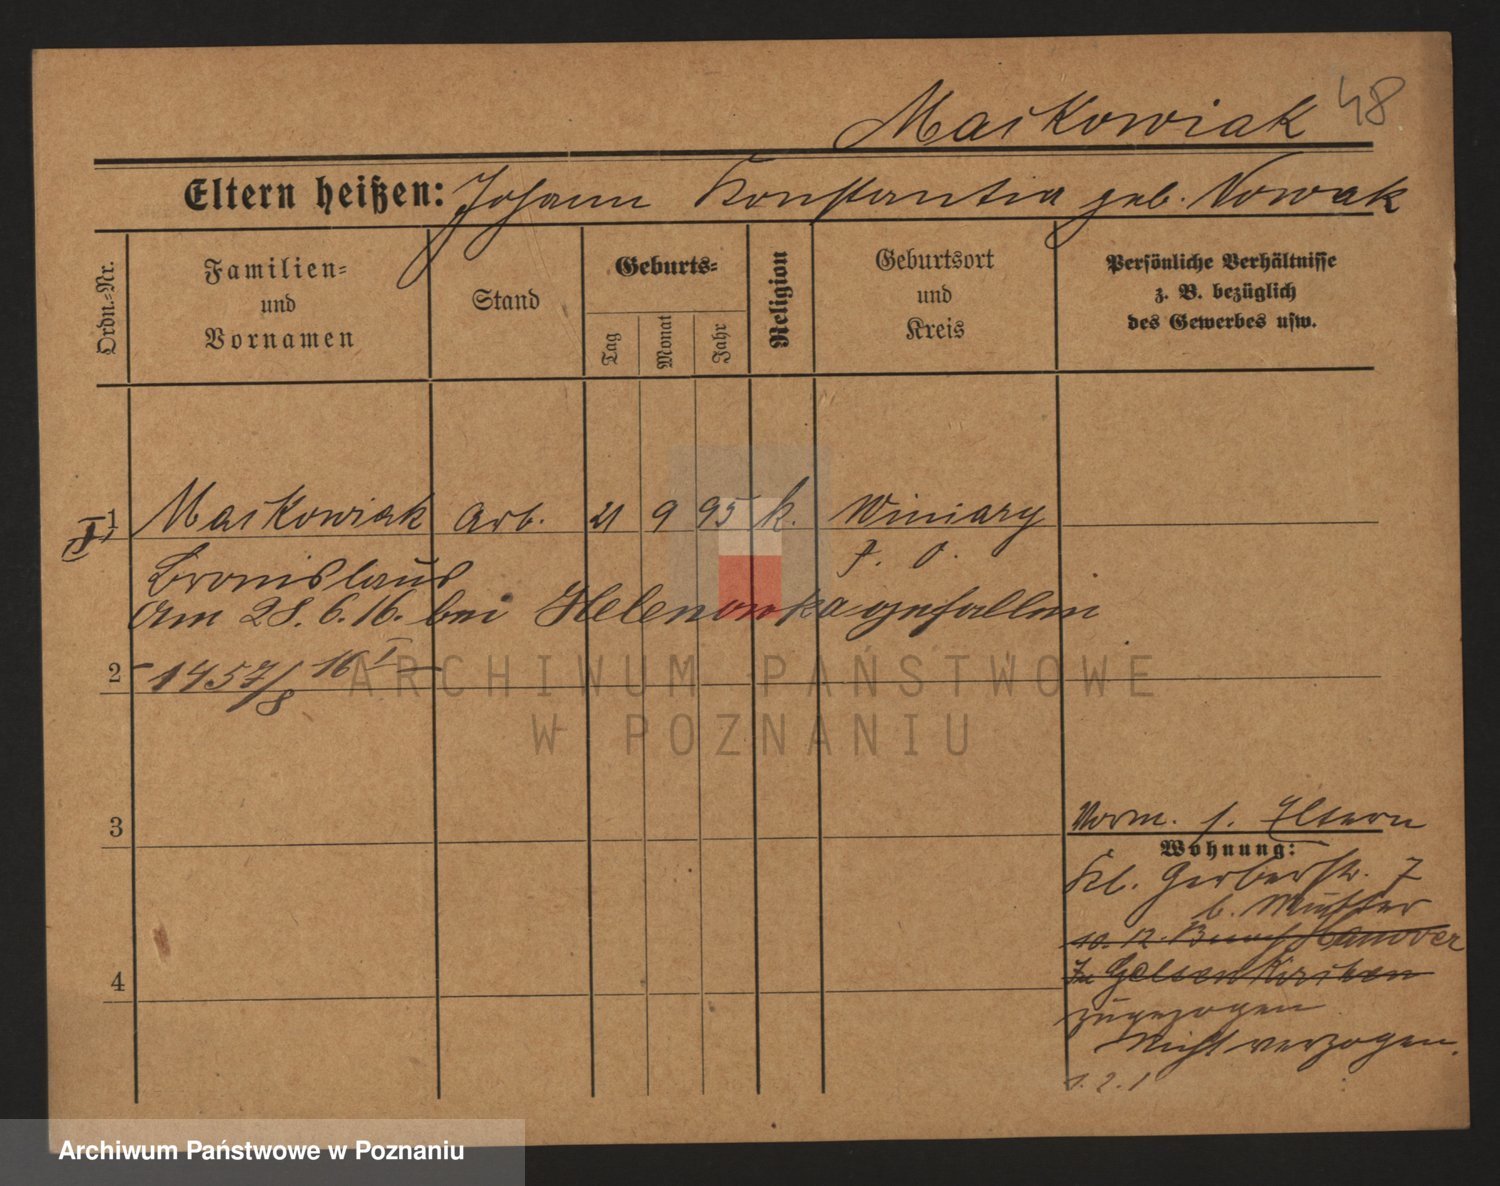 Maćkowiak 48
Eltern heißen: Johann Konstantia geb. Nowak
Ordn.-Nr.
Familien-
und
Vornamen
Stand
Geburts-
Tag
Monat
Jahr
Religion
Geburtsort
und
Kreis
Persönliche Verhältnisse
z. B. bezüglich
des Gewerbes usw.
1 Maćkowiak Arb. 21 9 95 k. Winiary
Bronislaus P. O.
Am 28. 6. 16. bei Helenowka gefallen
2 1457/8 16 I
ARCHIWUM PAŃSTWOWE
W POZNANIU
3
Vorm. s. Eltern
Wohnung:
Kl. Gerberstr. 7
b. Mutter
10. 12. Hanover
In Gelsenkirchen
zugezogen
Nicht verzogen.
4
Archiwum Państwowe w Poznaniu